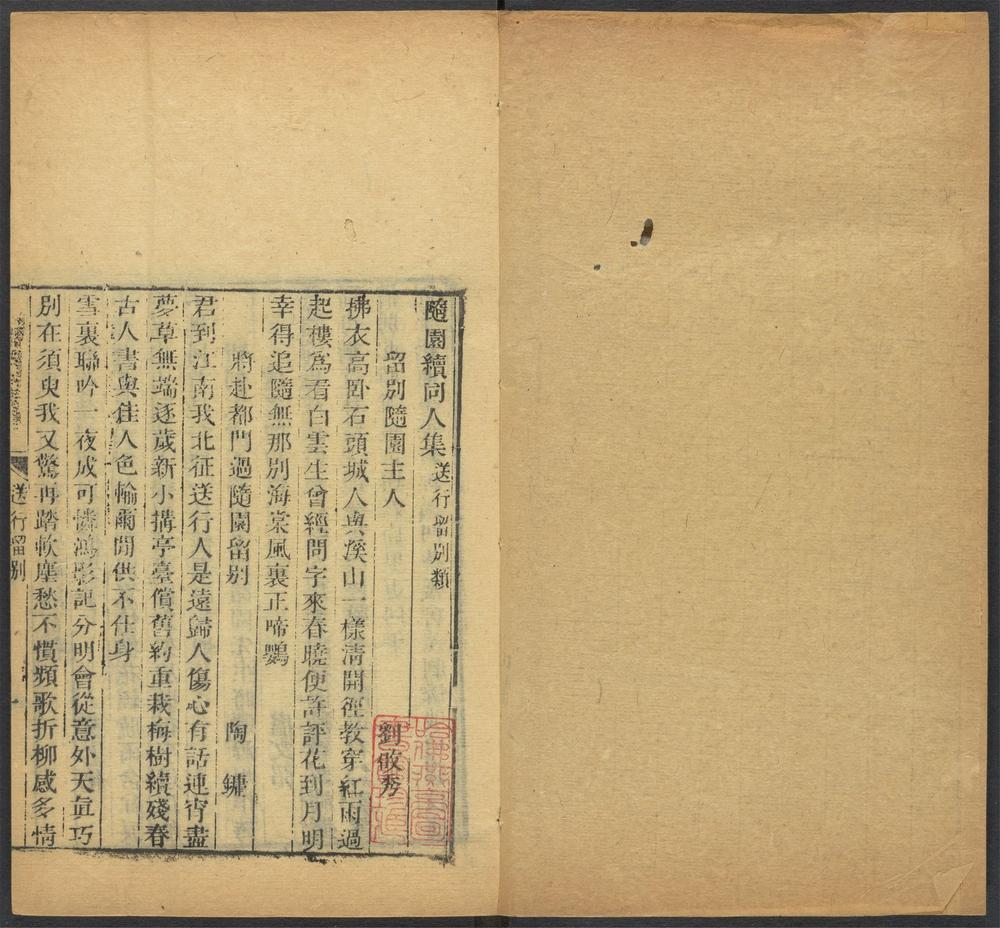 隨園續同人集 送行留別類
留別隨園主人 劉敀秀
拂衣高卧石頭城人與溪山一樣清開徑教穿紅雨過
起樓為看白雲生曾經問字來春曉便許評花到月明
幸得追隨無那別海棠風裏正啼鸚
將赴都門過隨園留別 陶鏞
君到江南我北征送行人是遠歸人傷心有話連宵盡
夢草無端逐歲新小搆亭臺償舊約重栽梅樹續殘春
古人書與佳人色輸爾閒供不仕身
雪裏聯吟一夜成可憐鴻影記分明會從意外天真巧
別在須臾我又驚再踏軟塵愁不慣頻歌折柳感多情
送行留別
一
哈佛燕京圖書館珍藏